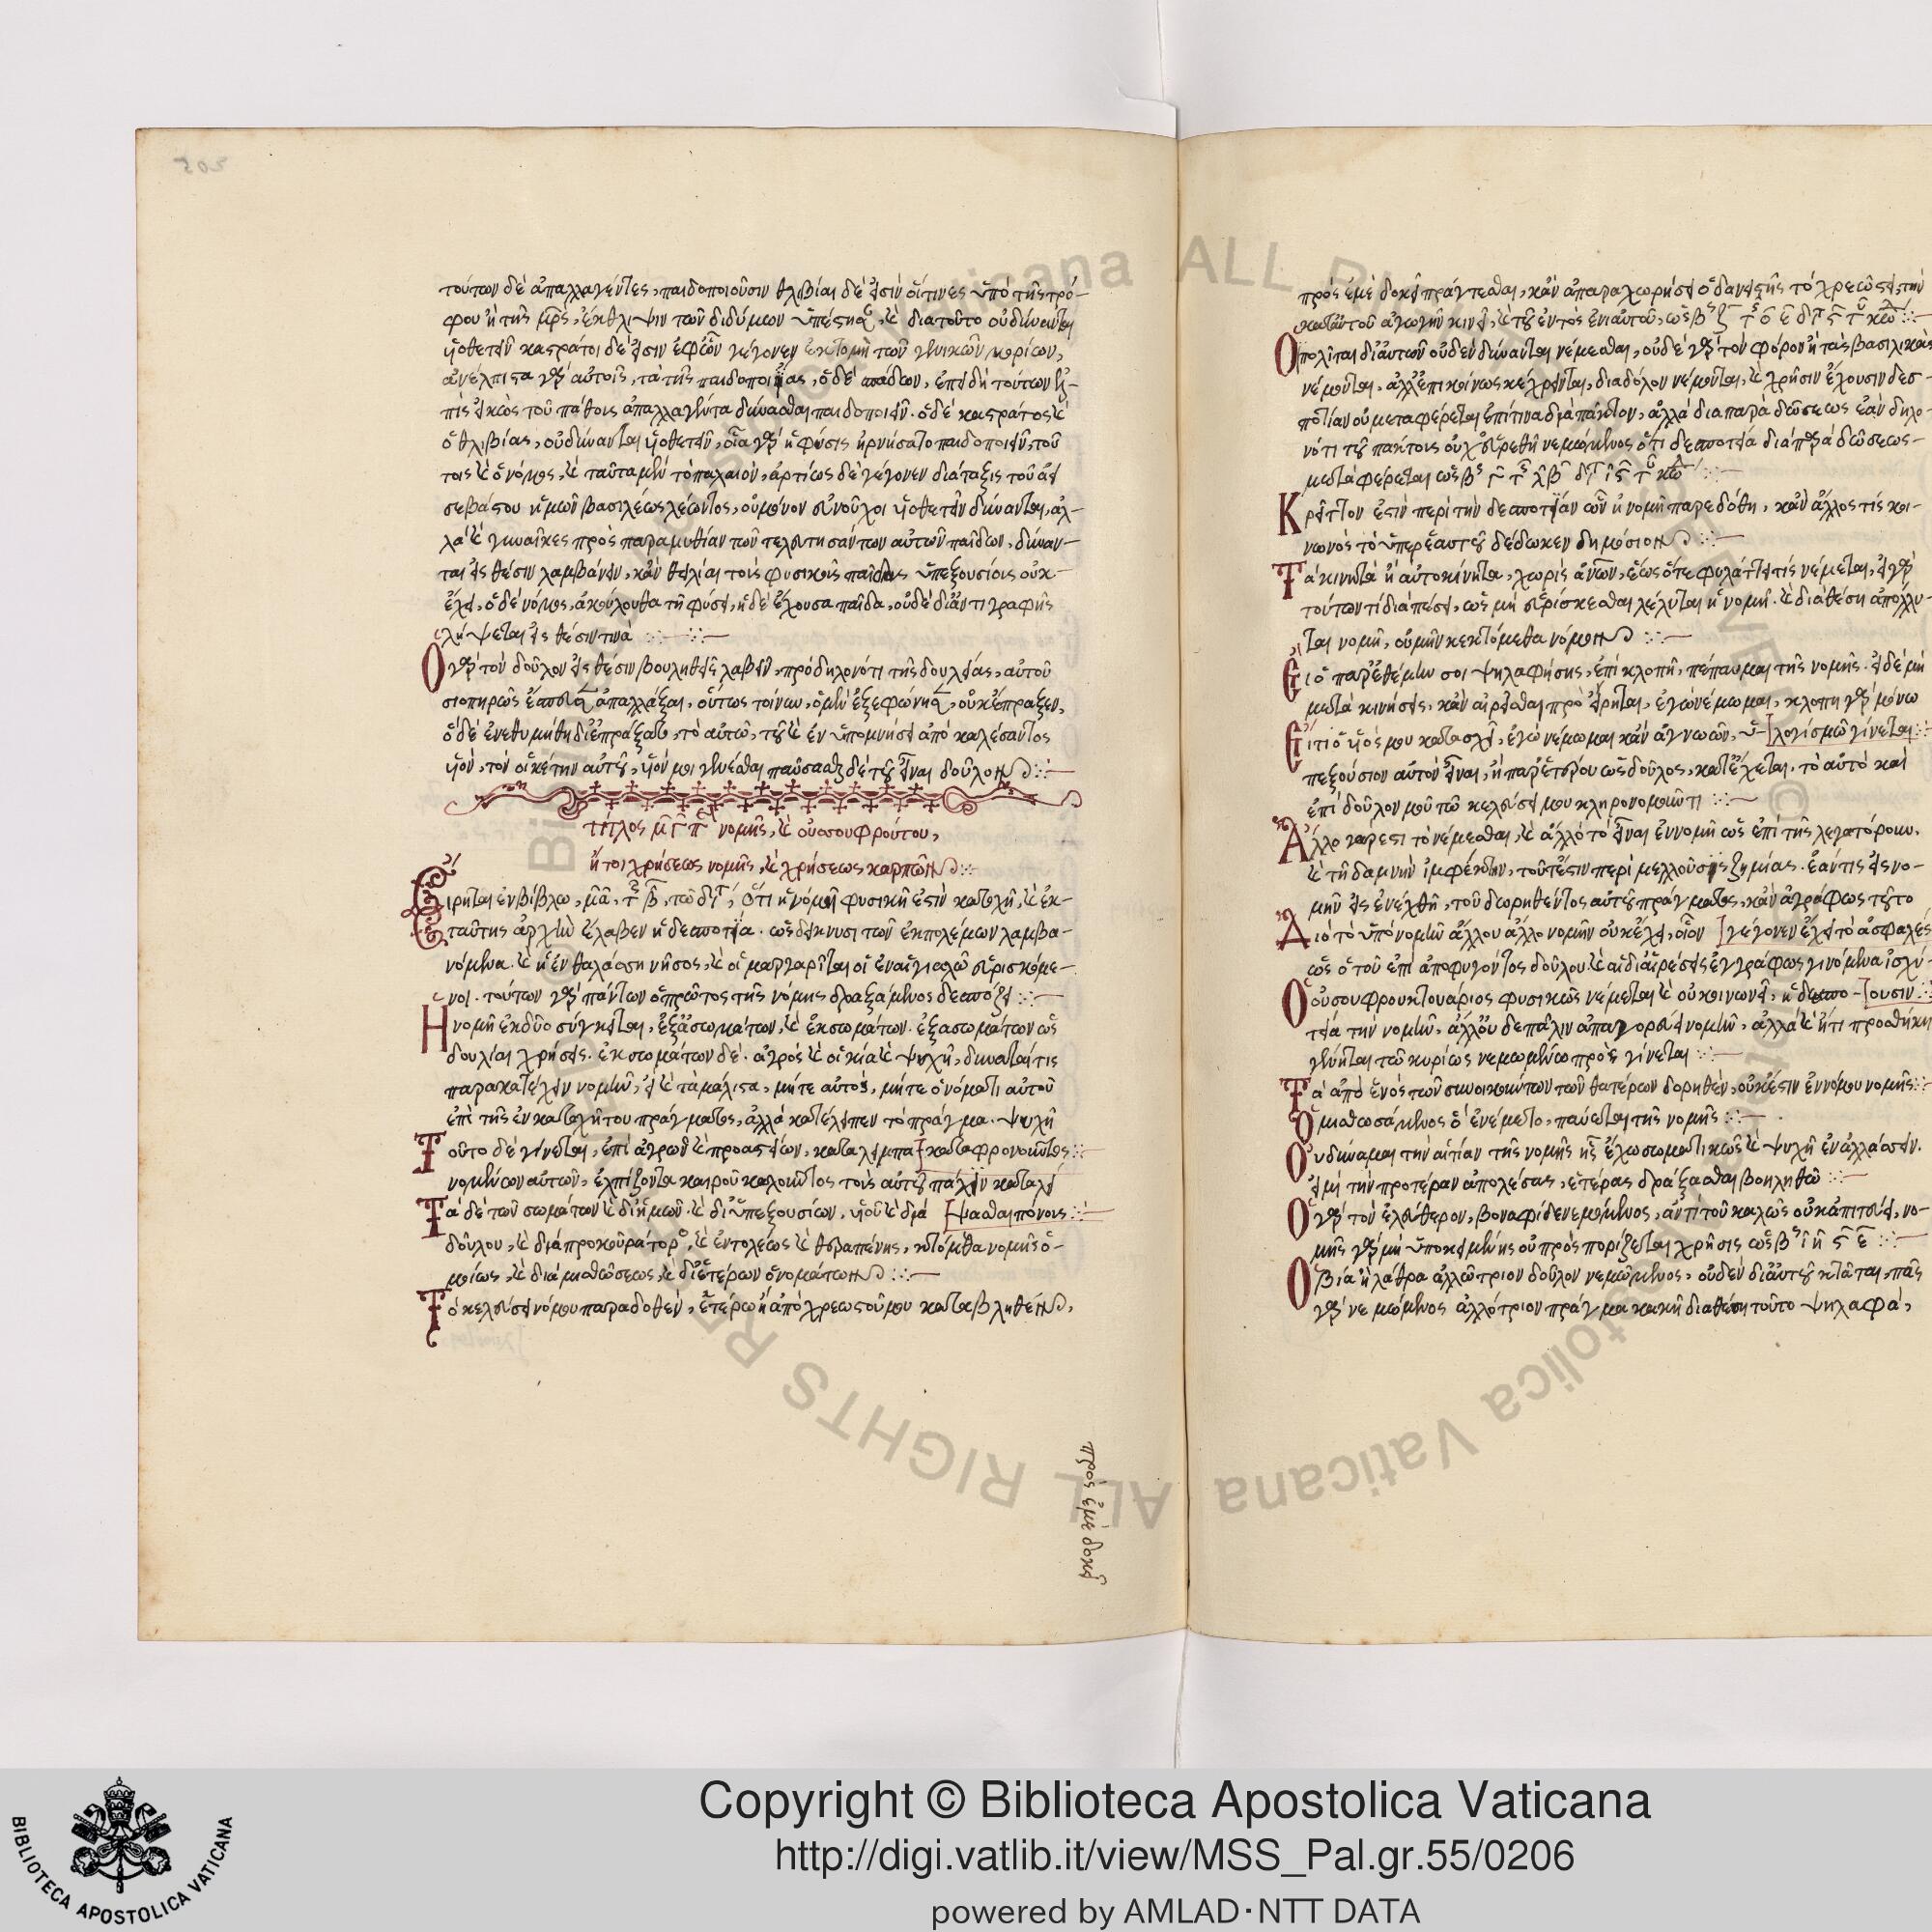 τούτων δὲ ἀπαλλαγέντες, παιδοποιοῦσιν θλιβίαι δέ εἰσιν οἵτινες ὑπὸ τῆς τρο-
φοῦ ἢ τῆς μρς, ἔκθλιψιν τῶν διδύμων διατοῦτο οὐ δύνανται
υἱοθετεῖν καστράτοι δέ εἰσιν ἐφ' ὧν γέγονεν ἐκτομὴ τῶν γεννικῶν μορίων,
ἀνέλπιστα γὰρ αὐτοῖς, τὰ τῆς παιδοποιΐας, ὁ δὲ σπάδων, ἐπειδὴ τούτων ἐλ-
πὶς εἰκὸς τοῦ πάθους ἀπαλλαγέντα δύνασθαι παιδοποιεῖν. ὁ δὲ καστράτος καὶ
ὁ θλιβίας, οὐ δύνανται υἱοθετεῖν, οἷα γὰρ ἡ φύσις ἠρνήσατο παιδοποιεῖν, τού
τοις καὶ ὁ νόμος, καὶ ταῦτα μὲν τὸ παλαιὸν, ἀρτίως δὲ γέγονεν διάταξις τοῦ ἀεὶ
σεβάστου ἡμῶν βασιλέως λέωντος, οὐ μόνον εὐνοῦχοι υἱοθετεῖν δύνανται, ἀλ-
λὰ καὶ γυναῖκες πρὸς παραμυθίαν τῶν τελευτησάντων αὐτῶν παίδων, δύναν-
ται εἰς θέσιν λαμβάνειν, κἂν τοῖς φυσικοῖς παῖδας ὑπεξουσίοις οὐκ-
ἔχει, ὁ δὲ νόμος, ἀκόλουθα τῇ φύσει, ἡ δὲ ἔχουσα παῖδα, οὐδὲ δι' ἀντιγραφῆς
λήψεται εἰς θέσιν τινὰ
Ὁ γὰρ τὸν δοῦλον εἰς θέσιν βουληθεὶς λαβεῖν, πρόδηλον ὅτι τῆς δουλείας, αὐτοῦ
σιοπηρῶς ἀπαλλάξαι, οὕτως τοίνυν, ὃ μὲν ἐξεφώνησεν, οὐκ ἔπραξεν,
ὃ δὲ ἐνεθυμήθη διεπράξατο, τὸ αὐτὸ, τοῦ καὶ ἐν ὑπομνήσει ἀποκαλέσαντος
υἱὸν, τὸν οἰκέτην αὐτοῦ, υἱόν μοι γενέσθαι παύσασθαι δὲ τοῦ εἶναι δοῦλον
τίτλος μ̅γ̅ π νομῆς, καὶ οὐσουφρούτου,
ἤτοι χρήσεως νομῆς, καὶ χρήσεως καρπῶν
Εἴρηται ἐν βίβλω, μ̅α̅, τ β̅, τῶ διγ, ὅτι ἡ νομὴ φυσική ἐστὶν κατοχὴ, καὶ ἐκ-
ταύτης ἀρχὴν ἔλαβεν ἡ δεσποτία. ὡς δείκνυσι τῶν ἐκ πολέμων λαμβα-
νόμενα. καὶ ἡ ἐν θαλάσση νῆσος, καὶ οἱ μαργαρῖται οἱ ἐν αἰγιαλῶ εὑρισκόμε-
νοι. τούτων γὰρ πάντων ὁ πρῶτος τῆς νόμης δραξάμενος δεσπόζει
Ἡ νομὴ ἐκ δύο σύγκειται, ἐξ ἀσωμάτων, καὶ ἐκ σωμάτων. ἐξ ασωμάτων ὡς
δουλίαι χρήσεις. ἐκ σωμάτων δὲ. ἀγρὸς καὶ οἰκία καὶ ψυχῆ, δύναταί τις
παρακατέχειν νομὴν, εἰ καὶ τὰ μάλιστα, μήτε αὐτὸς, μήτε ὀνόματι αὐτοῦ
ἐπὶ τῆς ἐν κατοχῆ του πράγματος, ἀλλὰ κατέλειπεν τὸ πράγμα. ψυχῆ
Τοῦτο δὲ γίνεται, ἐπὶ ἀγρῶν καὶ προαστείων, καταλειμπα [καταφρονοῦντος
νομένων αὐτῶν, ἐλπίζοντα καιροῦ καλοῦντος τοὺς αὐτοῦ πάλιν καταλεί
Τὰ δὲ τῶν σωμάτων καὶ δι' ἡμῶν. καὶ δι' ὑπεξουσίων, υἱοῦ καὶ διὰ [ψασθαι πόνους
δούλου, καὶ διὰ προκουράτορος, καὶ ἐντολέως νομῆς ὁ-
μοίως, καὶ διὰ μισθώσεως, καὶ δι' ἑτέρων ὀνομάτων
Τὸ κελεύσει νόμου παραδοθὲν, ἑτέρω ἢ ἀπὸ χρεώστου μου καταβληθὲν,
πρὸς ἐμὲ δοκεῖ
πρὸς ἐμὲ δοκεῖ πράγτεσθαι, κἂν ἀπαραχωρήσει ὁ δανειστὴς τὸ χρεώστει, τὴν
κατ' αὐτοῦ ἀγωγὴν κινεῖ, καὶ τοῦ ἐντὸς ἐνιαυτοῦ,
Ὁ πολῖται δι' αὐτῶν οὐδὲν δύνανται νέμεσθαι, οὐδὲ γὰρ τὸν φόρον ἢ τὰς βασιλικὰς
νέμονται, ἀλλ' ἐπικοίνως κέχρηνται, διαδόλον νέμονται, καὶ χρῆσιν ἔχουσιν δεσ-
ποτίαν οὐ μεταφέρεται ἐπί τινα διὰ πάκτον, ἀλλὰ διαπαραδώσεως ἐὰν δηλο-
νότι τοῦ πάκτοις οὐχ εὑρεθῆ νεμώμενος ὅτι δεσποτεία διὰ παραδώσεως-
μεταφέρεται
Κρεῖττον ἐστὶν περὶ τὴν δεσποτίαν ὧν ἡ νομὴ παρεδόθη, κἂν ἄλλος τίς κοι-
νωνὸς τὸ ὑπερ δέδωκεν δημόσιον
Τὰ κινητὰ ἢ αὐτοκίνητα, χωρὶς ἀνων, ἕως ὅτε φυλάττει τίς νέμεται, εἰ γὰρ
τούτων τί διαπέσει, ὡς μὴ εὑρίσκεσθαι λέλυται ἡ νομὴ. καὶ διαθέση ἀπόλλυ-
ται νομὴ, οὐ μὴν κεκτόμεθα νόμον
Εἰ ὁ παρεθέμην σοι ψηλαφήσης, ἐπὶ κλοπῆ, πέπαυμαι τῆς νομῆς. εἰ δὲ μὴ
μετὰ κινήσεις, κἂν αἱρεῖσθαι προ εἴρηται, ἐγὼ νέμωμαι, κλοπη γὰρ μόνω
Εἴ τι ὁ υἱός μου κατασχεῖ, ἐγὼ νέμωμαι κἂν ἀγνωῶν, ὑ-[λογίσμῶ γίνεται
πεξούσιον αὐτὸν εἶναι, ἢ παρ' ἑτέρου ὡς δοῦλος, κατέχεται, τὸ αὐτὸ καὶ
ἐπὶ δοῦλον μοῦ τῶ κελεύσει μου κληρονομιῶτι
Ἄλλο γάρ ἐστι τὸ νέμεσθαι, καὶ ἄλλο τὸ εἶναι ἐν νομῆ ὡς ἐπὶ τῆς λεγατόρουμ.
καὶ τῆ δαμνὴν ἰμφέκτην, τοῦτ' ἔστιν περὶ μελλούσης ζημίας. ἐάν τις εἰς νο-
μὴν εἰς ἐνέχθη, τοῦ δωρηθέντος αὐτοῦ πράγματος, κἂν ἀγράφως τοῦτο
Διὸ τὸ ὑπὸ νομὴν ἄλλου ἄλλο νομὴν οὐκ ἔχει, οἷον [γέγονεν ἔχει τὸ ἀσφαλές
ὡς ὁ τοῦ ἐπὶ ἀποφυγόντος δούλου. καὶ αἱ διαιρέσεις ἐγγράφως γινόμενα ἰσχύ-
Ὁ οὐσουφρουκτουάριος φυσικῶς νέμεται καὶ οὐ κοινωνεῖ, ἡ δεσπο-[ουσιν
τεία τὴν νομὴν, ἄλλου δὲ πάλιν ἀπαγορεύει νομὴν, ἀλλὰ καὶ ἤτι προσθήκη
γένηται τῶ κυρίως νεμωμένω πρὸς γίνεται
Τὰ ἀπὸ ἑνὸς τῶν συνοικούντων τῶν θατέρων δορηθὲν, οὐκ ἔστιν ἐν νόμου νομῆς
Ὁ μισθωσάμενος ὃ ἐνέμετο, παύεται τῆς νομῆς
Οὐ δύναμαι τὴν αἰτίαν τῆς νομῆς ἧς ἔχω σωματικῶς καὶ ψυχῆ ἐναλλάσσειν.
εἰμὶ τὴν προτέραν ἀπολέσας, ἑτέρας δράξασθαι βουληθῶ
Ὁ γὰρ τὸν ἐλεύθερον, βοναφίδε νεμόμενος, ἀντὶ τοῦ καλῶς οὐκ ἀπιστεῖ, νο-
μῆς γὰρ μὴ ὑποκειμένης οὐ πρὸς πορίζεται χρῆσις
Ὁ βία ἢ λάθρα ἀλλότριον δοῦλον νεμώμενος, οὐδὲν δι' αὐτοῦ κτᾶται, πᾶς
γὰρ νεμώμενος ἀλλότριον πράγμα κακῆ διαθέση τοῦτο ψηλαφᾷ,
Copyright © Biblioteca Apostolica Vaticana
http://digi.vatlib.it/view/MSS_Pal.gr.55/0206
powered by AMLAD·NTT DATA
BIBLIOTECA APOSTOLICA VATICANA